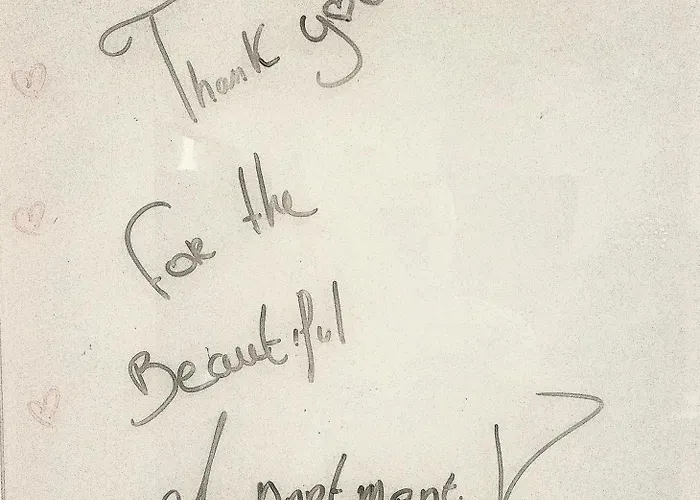 Thank you
For the
Beautiful
Apartment.